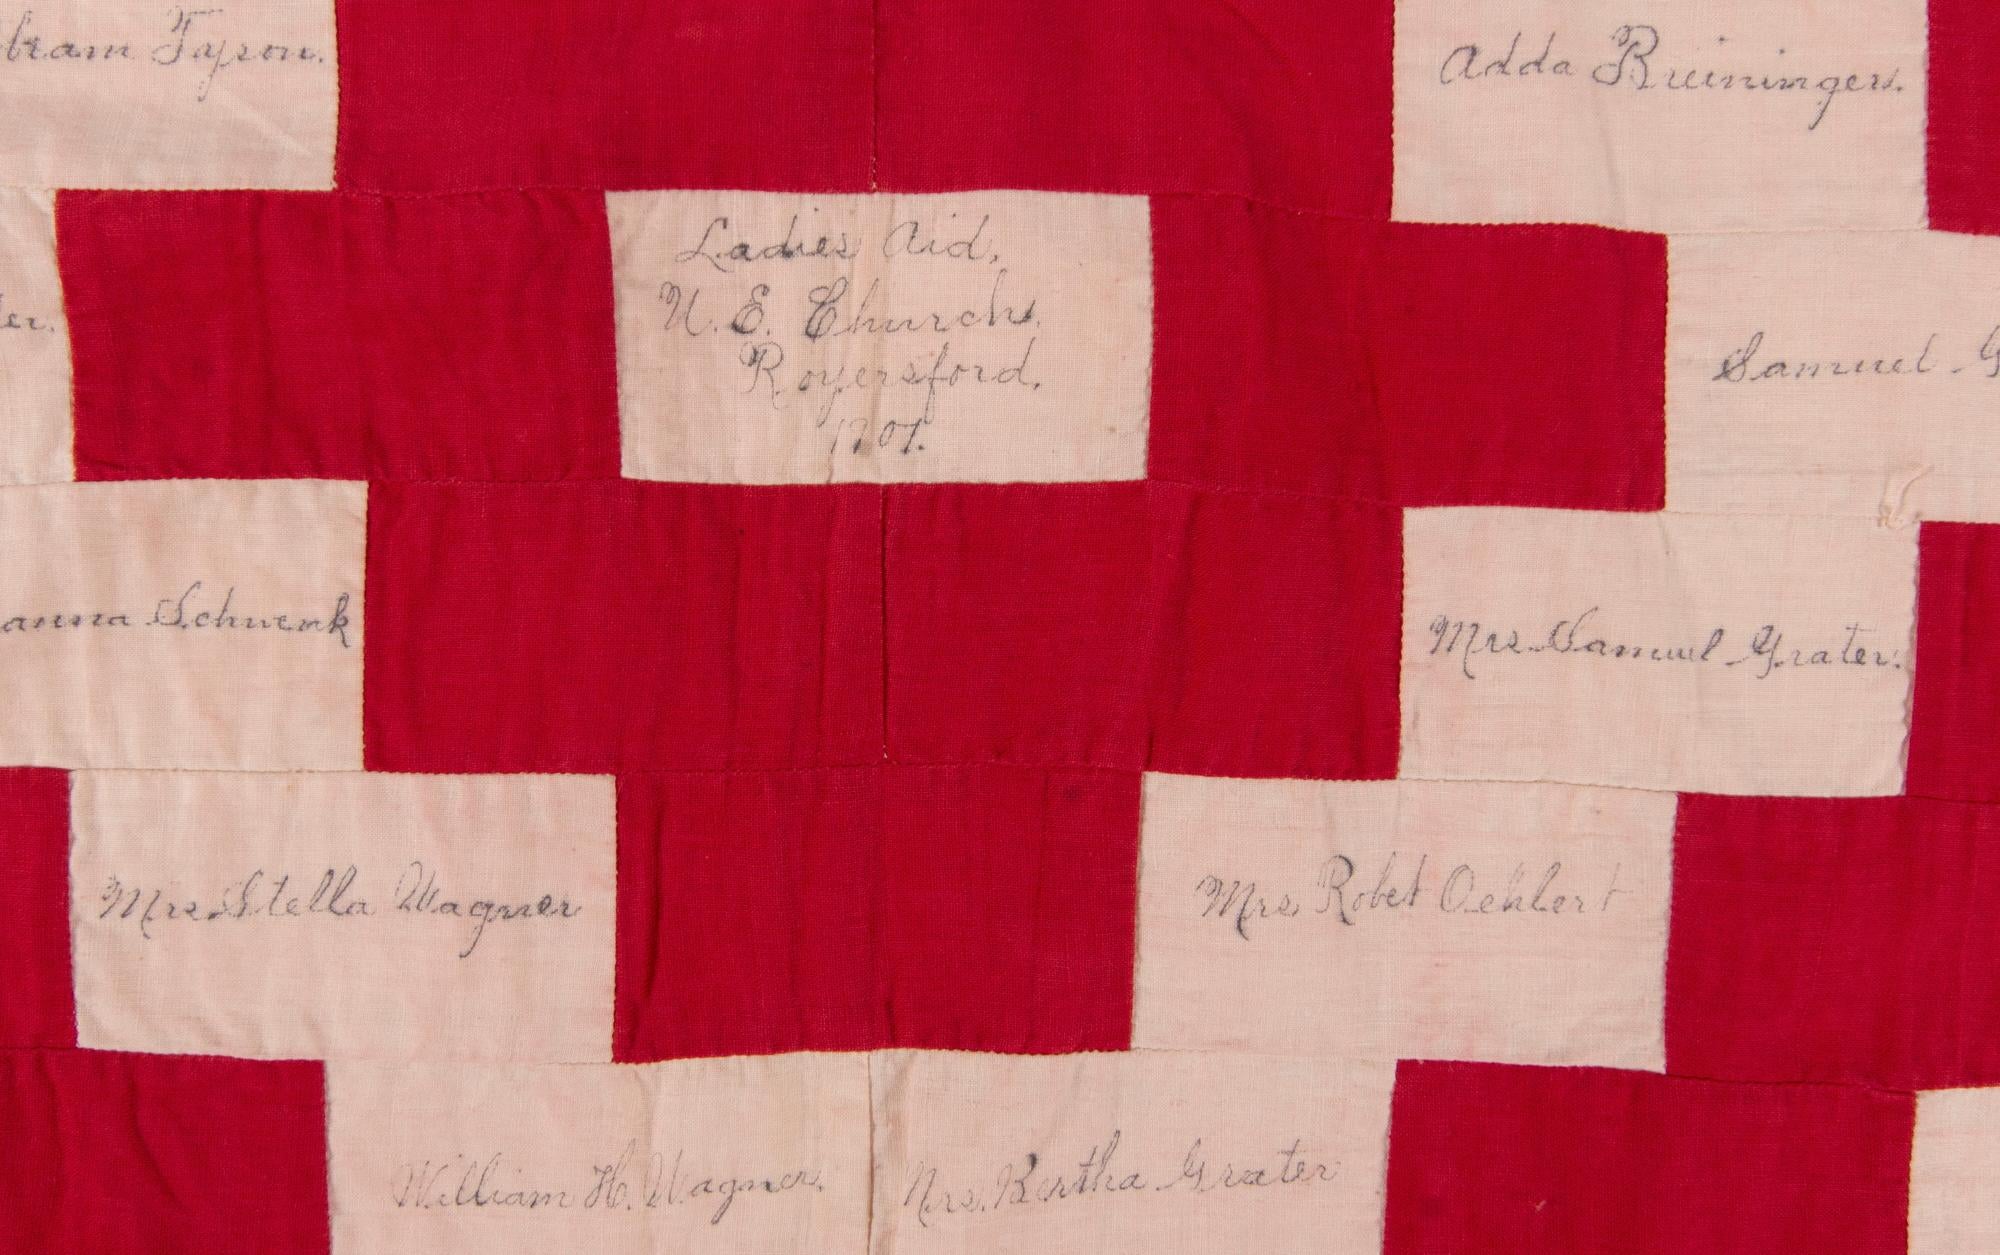 bram Tyson.
Adda Breininger.
Ladies Aid,
U. E. Church.
Royersford.
1901.
er.
Samuel G
anna Schwenk
Mrs. Samuel Grater.
Mrs Stella Wagner
Mrs Robet Oehlert
William H. Wagner.
Mrs. Bertha Grater